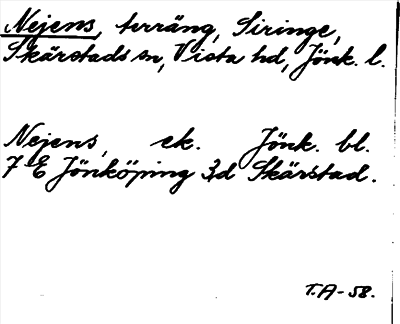 Nejens, terräng, Siringe,
Skärstads sn, Vista hd, Jönk. l.
Nejens, ek. Jönk. bl.
7 E Jönköping 3d Skärstad.
T.A-58.